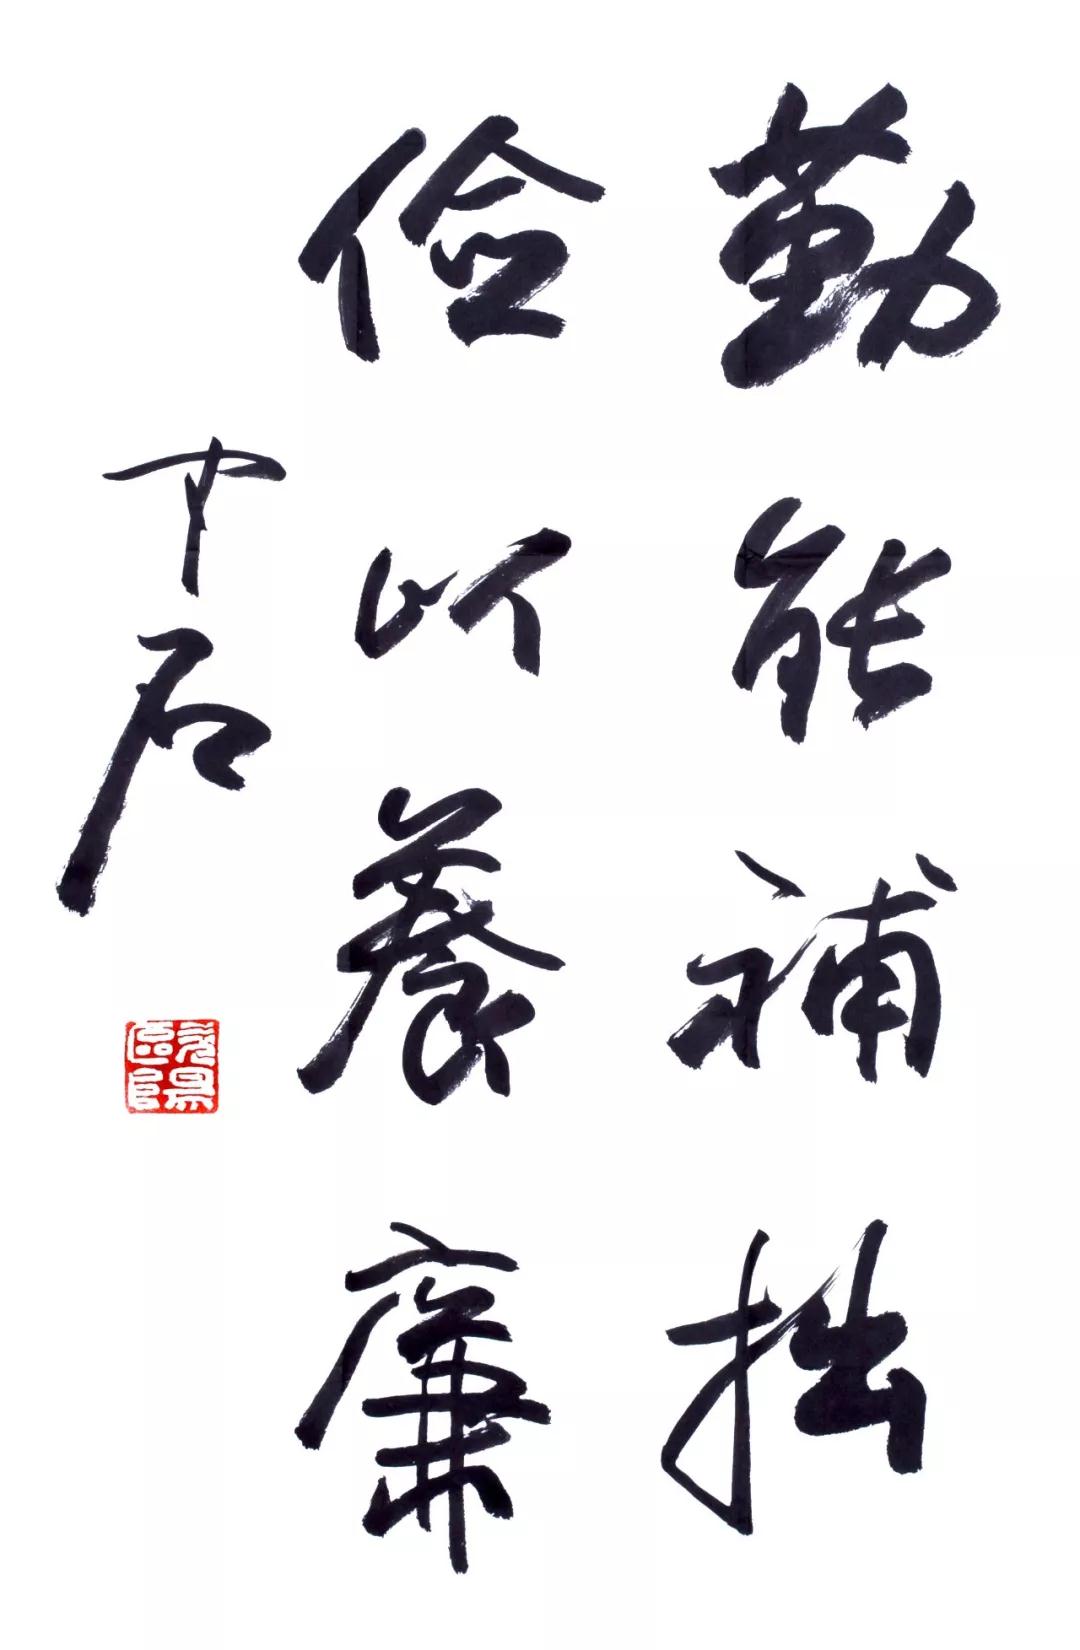 勤能補拙
儉以養廉
中石
歐陽